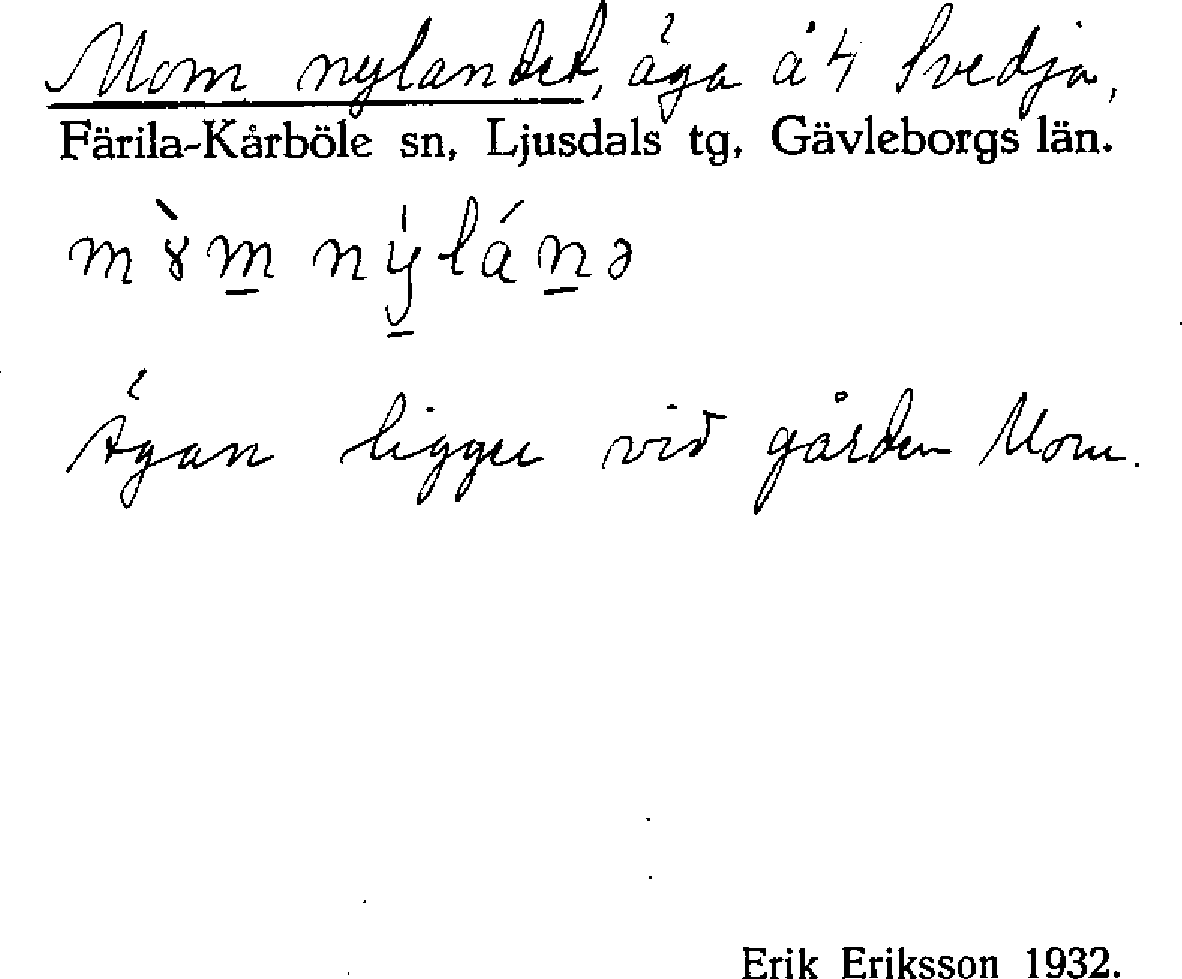 Mom nylandet, äga å 4 Svedja,
Färila-Kårböle sn, Ljusdals tg, Gävleborgs län.
m ɤ̀ m̲ n ý̲ l á n̲ ə
Ägan ligger vid gården Mom.
Erik Eriksson 1932.